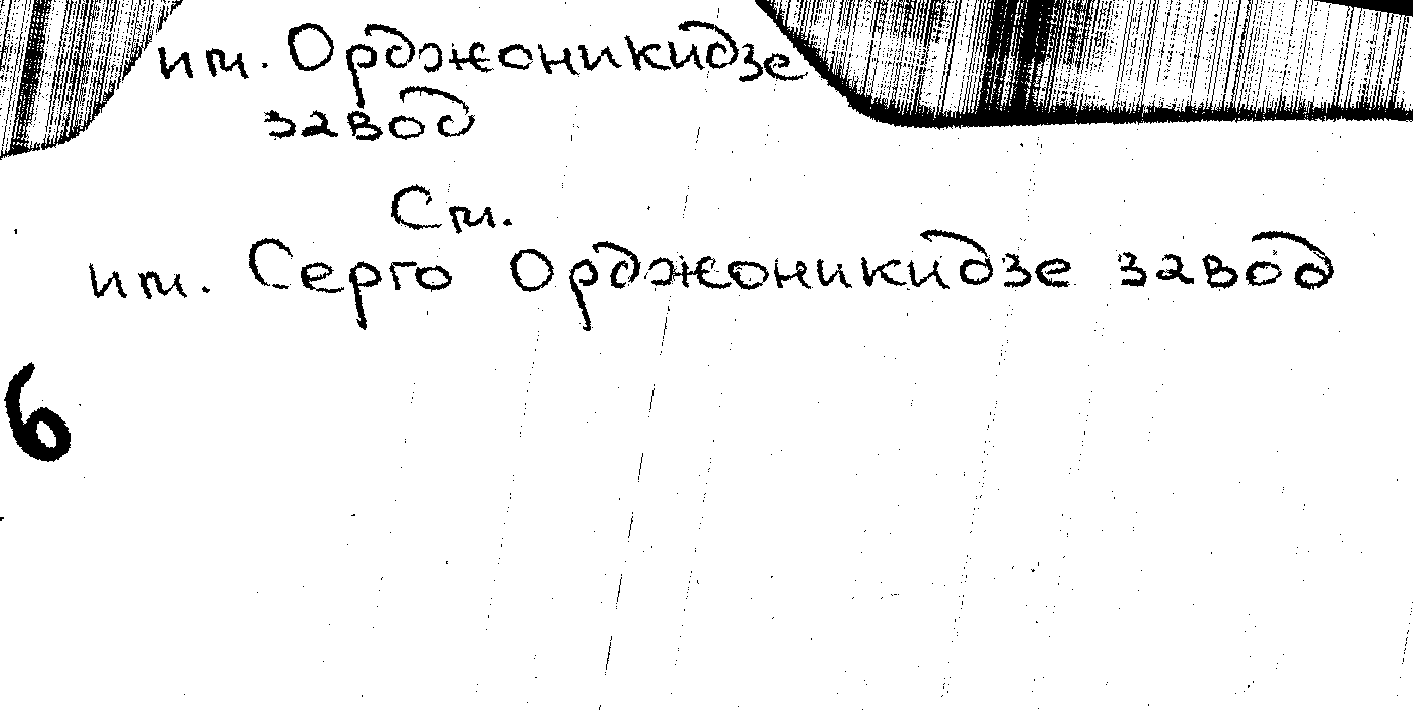 им. Орджоникидзе
завод
См.
им. Серго Орджоникидзе завод
6